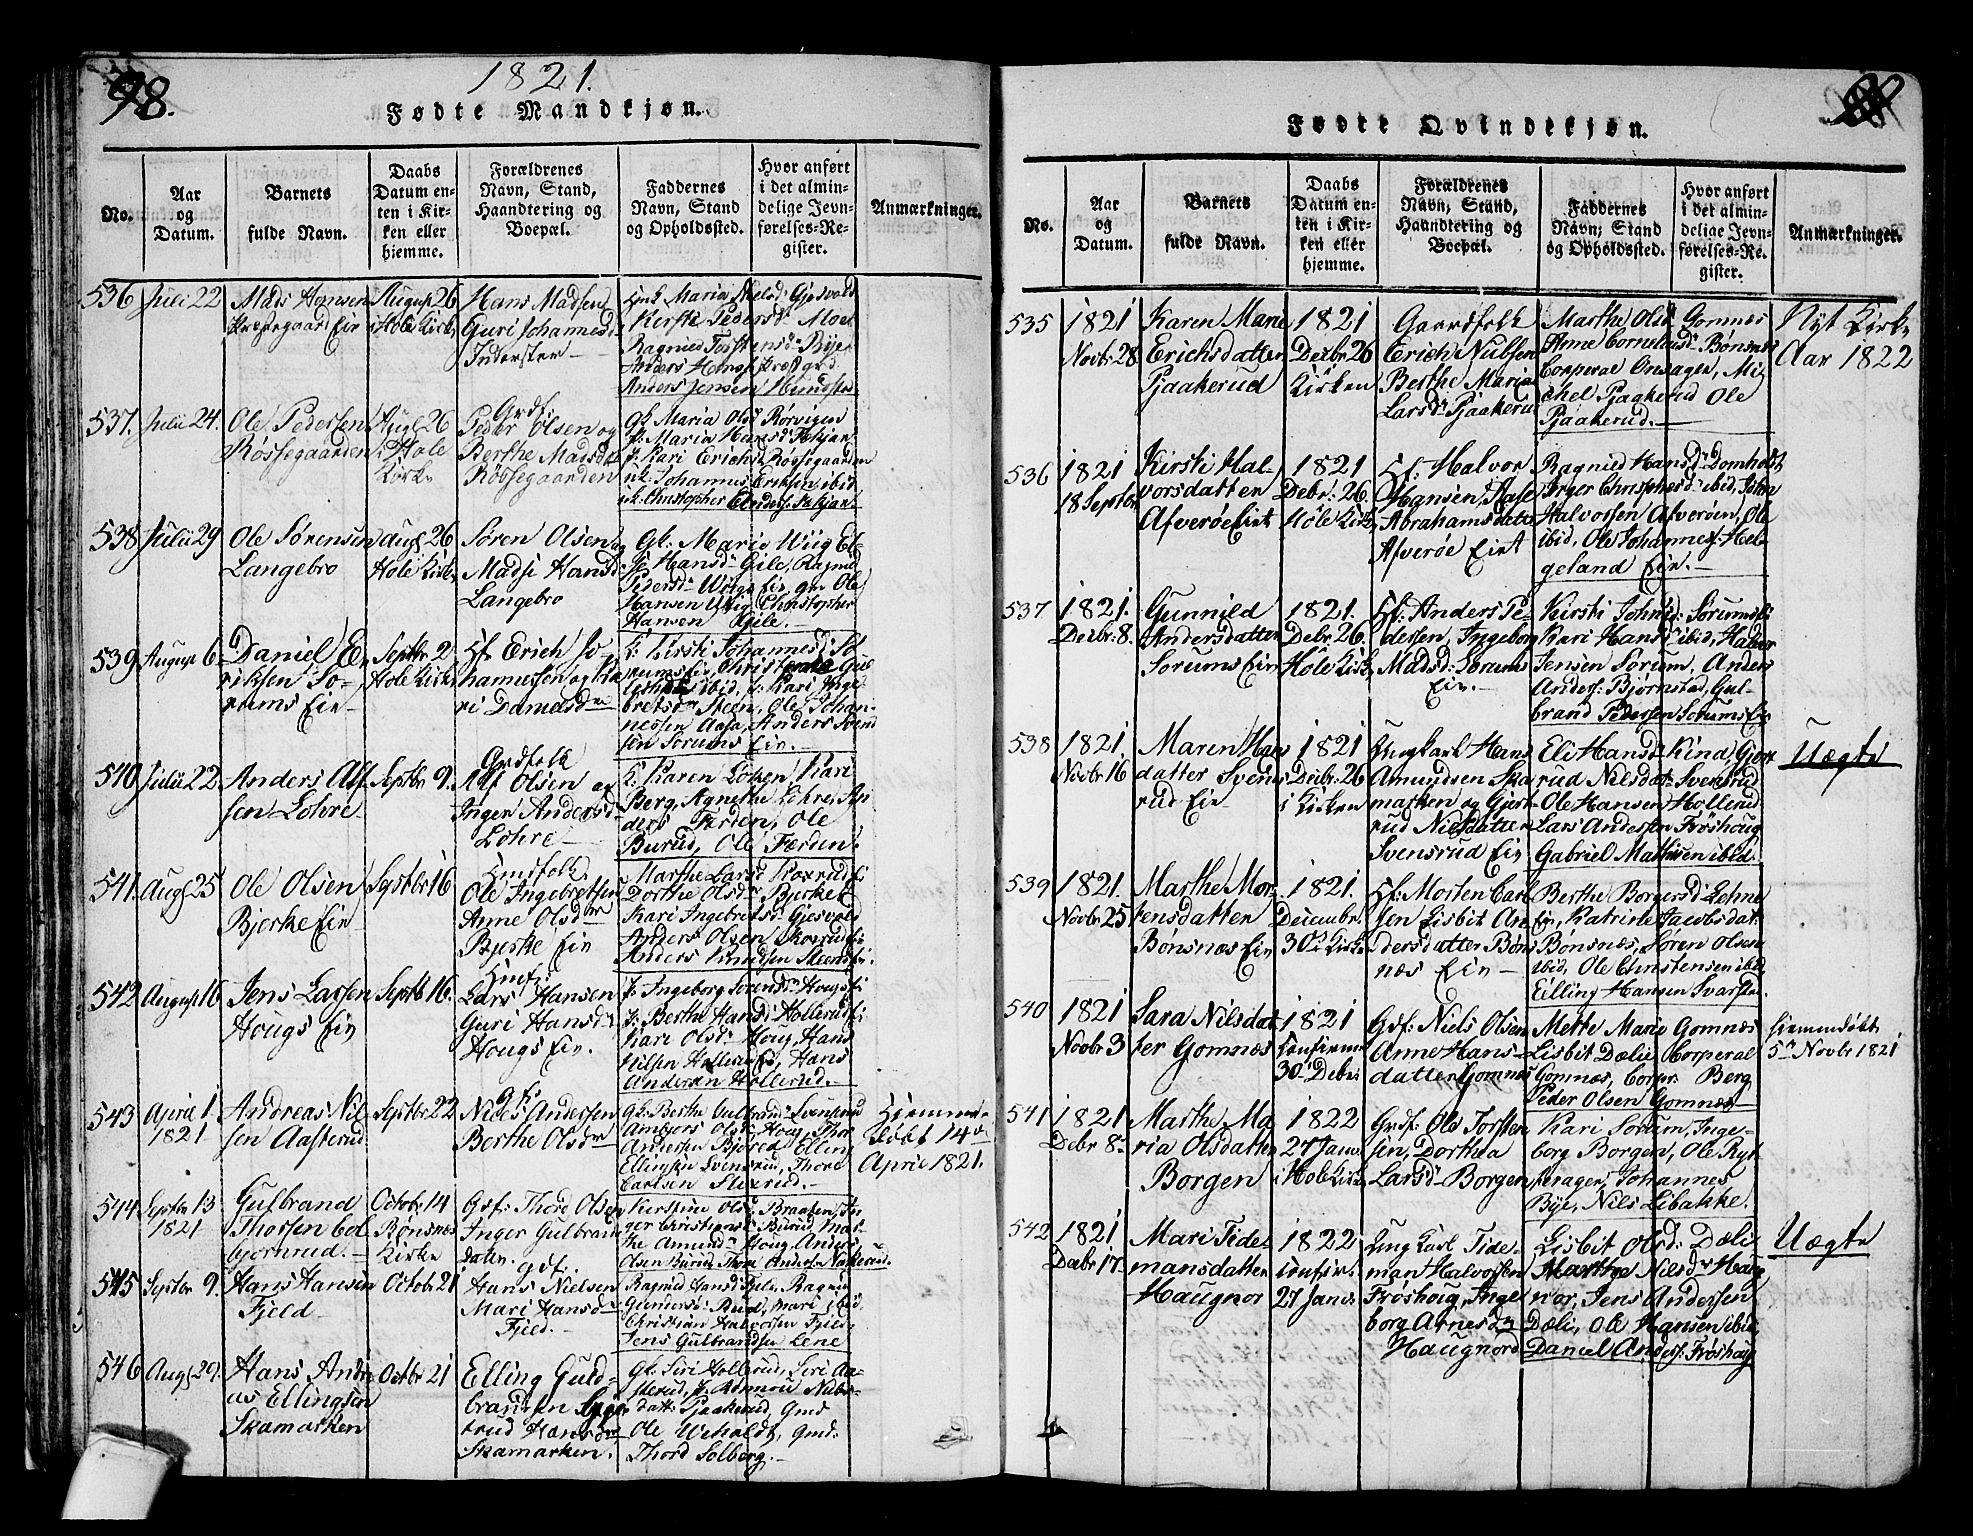 98.
1821.
Fødte Mandkjøn.
No.
Aar
og
Datum.
Barnets
fulde Navn.
Daabs
Datum en-
ten i Kir-
ken eller
hjemme.
Forældrenes
Navn, Stand,
Haandtering og
Boepæl.
Faddernes
Navn, Stand
og Opholdssted.
Hvor anført
i det almin-
delige Jevn-
førelses-Re-
gister.
Anmærkninger.
536
Juli 22
Mads Hansen
Præstegaard Eie
August 26
i Hole Kirke
Hans Madsen
Guri Johannesd
Inderster
Maria Nielsd Gjesvold
Kirsti Pedersd Moe
Ragnild Torstensd Bye
Anders Hansen
Anders Jensen Hundsta
537.
Julii 24.
Ole Pedersen
Røssegaarden
Aug 26
i Hole
Kirke
Grdf:
Peder Olsen og
Berthe Madsd
Røssegaarden
Gk. Maria Olsd Rørvigen
P. Maria Hansd
P. Kari Erichsd Røssegaarden
uk: Johannes Eriksen ibid
uk. Christopher
538
Julii 29
Ole Sørensen
Langebro
aug 26
Hole Kirke
Søren Olsen og
Madsi Hansd
Langebro
Gk. Marie Wiig
Hansd Gile, Ragnild
Pedersd Wiigs Eie gm Ole
Hansen Wiig Christopher
Hansen Gile.
539
August 6
Daniel E-
riksen So-
rums Eie
Septbr 2
Hole Kirke
Hf Erich Jo-
hannessen og Ka
ri Danielsd
K: Kirsti Johannesd So
rums Eie, Christense Gul
ibid, P: Kari Inge
bretsd Steen, Ole Johan-
nessen Aasa, Anders Svend
sen Sorums Eie.
540
Julii 22
Anders Alf
sen Lohre
Septbr 9.
Grdfolk
Alf Olsen og
Inger Andersd
Lohre
K. Karen Lohre, Kari
Berg, Agnethe Lohre, An
ders Færden, Ole
Burud, Ole Færden.
541.
Aug 25
Ole Olsen
Bjerke Eie
Septbr 16
Husfolk
Ole Ingebretsen
Anne Olsd
Bjerke Eie
Marthe Larsd
Dorthe Olsd Bjerke E
Kari Ingebretsd Gjesvold
Anders Olsen
Anders Knudsen
542
August 16
Jens Larsen
Hougs Eie
Septb 16
Husf:
Lars Hansen
Guri Hansd
Hougs Eie.
P. Ingeborg Hougs Ei
P. Berthe Hansd Hollerud Ei
Kari Olsd Houg, Hans
Nilsen Hollerud, Hans
Andersen Hollerud.
543
April 1
1821
Andreas Nil-
sen Aasterud
Septbr 22
gk.
Niels Andersen
Berthe Olsd
gk. Berthe Gulbrand Svensrud
Ambjørg Olsd Houg, Thor
Andersen Bjørnd Elling
Ellingsen Svensrud, Thore
Carlsen Flexrud.
Hjemme-
døbt 14
April 1821.
544
Septbr 13
1821
Gulbrand
Thorsen Col
bjørnrud.
Octobr 14
Bønsnæs
Kirke
Gdf: Thore Olsen
Inger Gulbrand
daten.
Kirstine Olsd Braaten, In
ger Christiansd Burud, Mar
the Amund Houg, Anders
Olsen Burud, Thore Andersen Nakerud.
545
Septbr 9.
Hans Hansen
Fjeld
Octobr 21
gdf.
Hans Nielsen
Mari Hansd
Fjeld.
Ragnild Hansd, Ragnild
Gundersd Rud, Mari ibid.
Christian Halvorsen Fjeld,
Jens Gulbrandsen Lene
546
Aug 29.
Hans Andre
as Ellingsen
Skamarken
Octbr 21
Elling Guld-
brandsen
trud Hansd
Skamarken.
Gk. Siri Hollerud, Siri Aa-
sterud, P. Rønnou Nubs-
datt: Pjaakerud, Gmd
Ole Wehaldt, Gmd.
Thord Solberg.
Fødte Qvindekjøn.
No.
Aar
og
Datum.
Barnets
fulde Navn.
Daabs
Datum en-
ten i Kir-
ken eller
hjemme.
Forældrenes
Navn, Stand,
Haandtering og
Boepæl.
Faddernes
Navn, Stand
og Opholdssted.
Hvor anført
i det almin-
delige Jevn-
førelses-Re-
gister.
Anmærkninger.
535
1821
Novbr 28
Karen Marie
Erichsdatter
Pjaakerud
1821
Decbr 26
Kirken
Gaardfolk
Erich Nubsen
Berthe Maria
Larsd Pjaakerud
Marthe Olsd Gomnæs
Anne Corneliusd Bønsnæs
Corperal Onsager, Mi
chel Pjaakerud Ole
Pjaakerud.
Nyt Kirke
Aar 1822
536
1821
18 Septbr
Kirsti Hal-
vorsdatter
Afverøe Eiet
1821
Debr. 26.
Hole Kirke
Hf. Halvor
Hansen, Aase
Abrahamsdatter
Afverøe Eiet
Ragnild Hansd Domholdt
Inger Christophersd ibid, John
Halvossen Afverøen, Ole
ibid, Ole Johannesf: Hel-
geland Eie.
537
1821.
Decbr: 8.
Gunnild
Andersdatter
Sorums Eie
1821.
Debr 26.
Hole Kirke
Hf. Anders Pe-
dersen, Ingeborg
Madsd: Sorums
Eie.
Kirsti Johnsd: Sorums Ei
Kari Hansd ibid, Halvor
Jensen Sorum, Anders
Anders: Bjørnstad, Gul-
brand Pedersen Sorums Eie
538
1821.
Novbr 16
Maren Hans
datter Svens
rud Eie
1821
Decbr 26
i Kirken
Ungkarl Hans
Amundsen Ska
marken og Gjert-
rud Nielsdatter
Svensrud Eie
Eli Hansd Kina, Gjert
rud Nilsdat: Svensrud
Ole Hansen Hollerud
Lars Andersen Frøshoug
Gabriel Mathisen ibid.
Uægte
539
1821.
Novbr 25
Marthe Mor
tensdatter
Bønsnæs Eie
1821.
Decembr.
30 Kirke
Hf: Morten Carl
sen Lisbit An
dersdatter Bøns
næs Eie
Berthe Borgersd: Lehne
Eie, Katrine Jacobsdat.
Bønsnæs, Søren Olsen
ibid, Ole Christensen ibid,
Eilling Hansen Svarsta.
540
1821
Novbr 3
Sara Nilsdat
ter Gomnæs
1821
confirme
30 Debr:
Gdf: Niels Olsen
Anne Hans-
datter Gomnæs
Mette Marie Gomnæs
Lisbit Dæli, Corperal
Gomnæs, Corpr. Berg
Peder Olsen Gomnæs
Hjemmedøbt
5 Novbr 1821
541
1821
Debr 8
Marthe Ma
ria Olsdatter
Borgen
1822
27 Janv
i Hole Kirke
Grdf: Ole Torsten
sen, Dorthea
Larsd Borgen
Kari Sorum, Inge-
borg Borgen, Ole Ryt
terager, Johannes
Bye, Niels Libakke.
542
1821
Decbr 17.
Mari Tide-
mansdatter
Haugnor
1822
confir.
27 Janv:
Ung Karl Tide-
man Halvorsen
Frøshoug, Inge
borg Arnesd
Haugnord
Lisbit Olsd: Dæli
Marthe Nilsd Haug
nor, Jens Andersen
Dæli, Ole Hansen ibid,
Daniel Anders: Frøshoug
Uægte